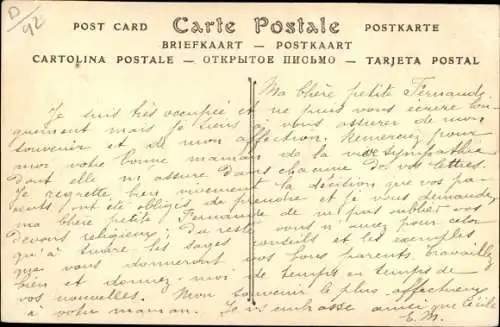 D
92
POST CARD Carte Postale POSTKARTE
BRIEFKAART — POSTKAART
CARTOLINA POSTALE — ОТКРЫТОЕ ПИСЬМО — TARJETA POSTAL
Ma chère petite Fernande
Je suis très occupée et ne puis vous écrire lon-
guement mais je tiens à vous assurer de mon
souvenir et de mon affection. Remerciez pour
moi votre bonne maman de la vive sympathie
dont elle m'assure dans chacune de vos lettres.
Je regrette bien vivement la décision que vos pa-
rents ont été obligés de prendre et je vous demande,
ma chère petite Fernande de ne pas oublier vos
devoirs religieux; du reste vous n'aurez pour cela
qu'à suivre les sages conseils et les exemples
que vous donneront vos bons parents. Travaillez
bien et donnez-moi de temps en temps de
vos nouvelles. Mon souvenir le plus affectueux
à votre maman. Je vs embrasse ainsi que Cécile
E.M.